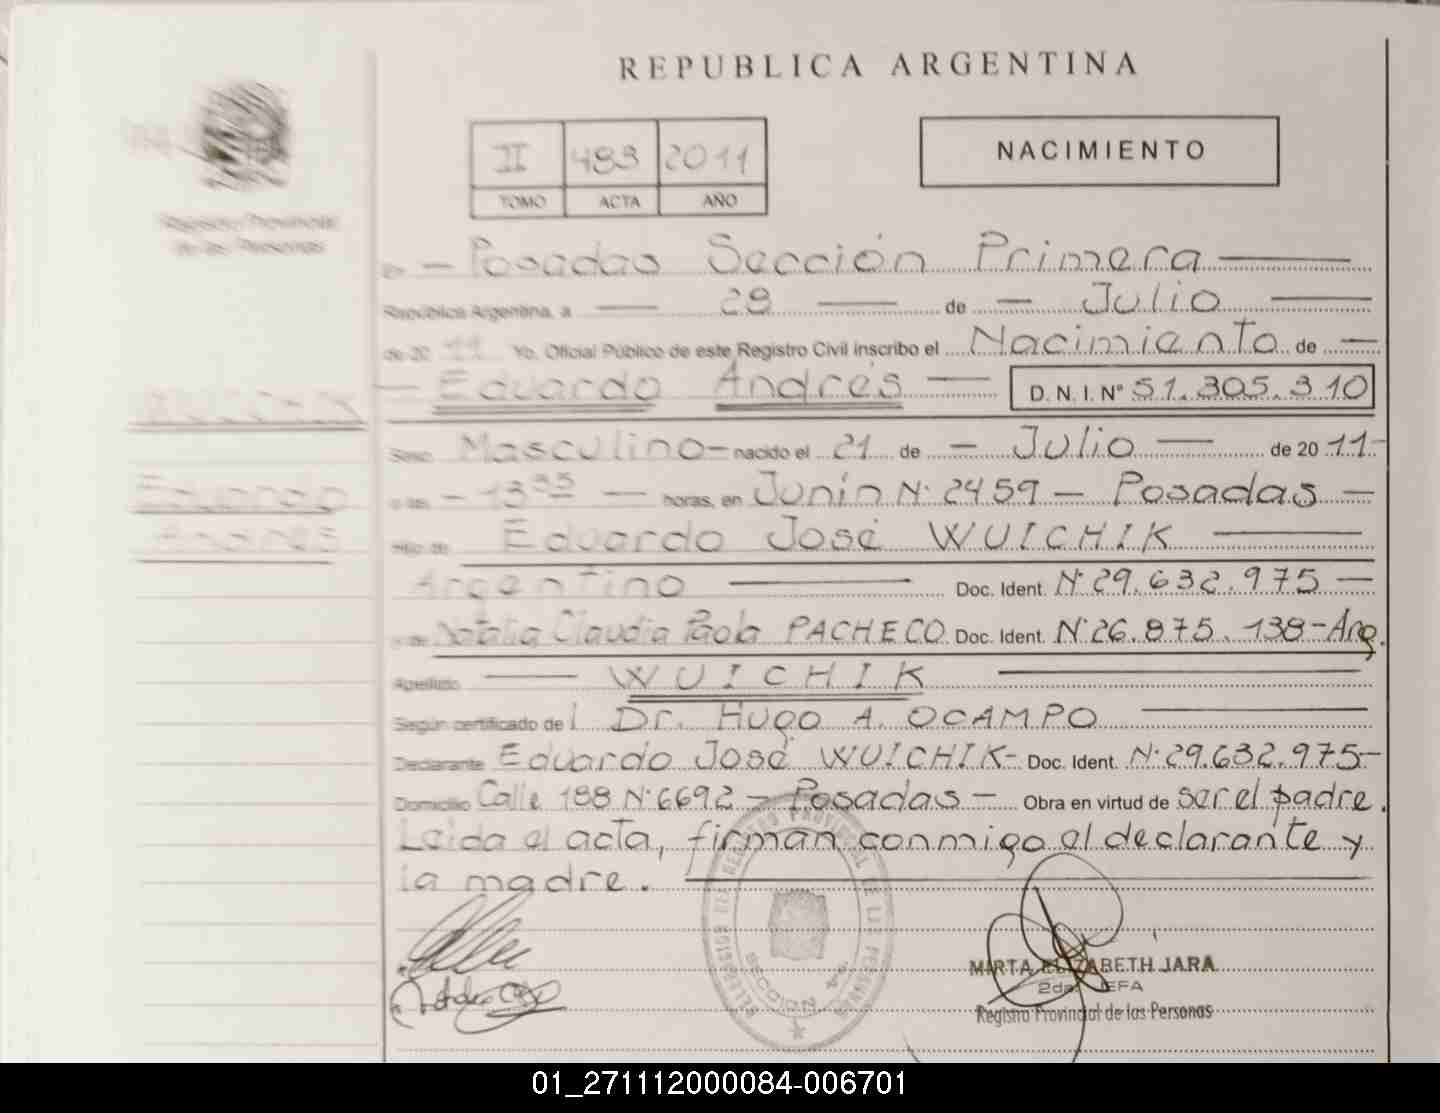 REPUBLICA ARGENTINA
II 483 2011
TOMO ACTA AÑO
NACIMIENTO
Registro Provincial
de las Personas
En — Posadas Sección Primera —
República Argentina, a — 29 — de — Julio —
de 20 11 Yo, Oficial Público de este Registro Civil inscribo el Nacimiento de —
— Eduardo Andrés — D. N. I. Nº 51.305.310
WUICHIK
Sexo Masculino — nacido el 21 de — Julio — de 20 11-
Eduardo
a las — 13 35 — horas, en Junín Nº 2459 — Posadas —
Andrés
Hijo de Eduardo José WUICHIK —
Argentino — Doc. Ident. Nº 29.632.975 —
y de Natalia Claudia Paola PACHECO Doc. Ident. Nº 26.875.138-Arg.
Apellido — WUICHIK —
Según certificado de l Dr. Hugo A. OCAMPO —
Declarante Eduardo José WUICHIK- Doc. Ident. Nº 29.632.975-
Domicilio Calle 188 Nº 6692 — Posadas — Obra en virtud de ser el padre.
Leida el acta, firman conmigo el declarante y
la madre. —
DELEGACION DE REGISTRO PROVINCIAL DE LAS PERSONAS
SECCION 1a.
MIRTA ELIZABETH JARA
2da. JEFA
Registro Provincial de las Personas
01_271112000084-006701